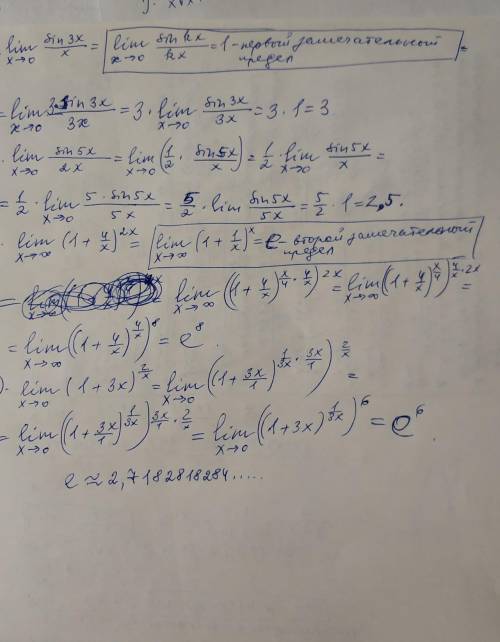 lim x→0 sin3x/x = lim x→0 sin kx/kx = 1 - первый замечательный предел =
= lim x→0 3 sin3x/3x = 3 · lim x→0 sin3x/3x = 3 · 1 = 3
. lim x→0 sin5x/2x = lim x→0 (1/2 · sin5x/x) = 1/2 · lim x→0 sin5x/x =
= 1/2 · lim x→0 5 · sin5x/5x = 5/2 · lim x→0 sin5x/5x = 5/2 · 1 = 2,5.
. lim x→∞ (1 + 4/x)^2x = lim x→∞ (1 + 1/x)^x = e - второй замечательный предел
= lim x→∞ ((1 + 4/x)^(x/4 · 4/x))^2x = lim x→∞ ((1 + 4/x)^(x/4))^(4/x · 2x) =
= lim x→∞ ((1 + 4/x)^(4/x))^8 = e^8.
). lim x→0 (1 + 3x)^(2/x) = lim x→0 ((1 + 3x/1)^(1/3x · 3x/1))^(2/x) =
= lim x→0 ((1 + 3x/1)^(1/3x))^(3x/1 · 2/x) = lim x→0 ((1 + 3x)^(1/3x))^6 = e^6.
e ≈ 2,7182818284.....